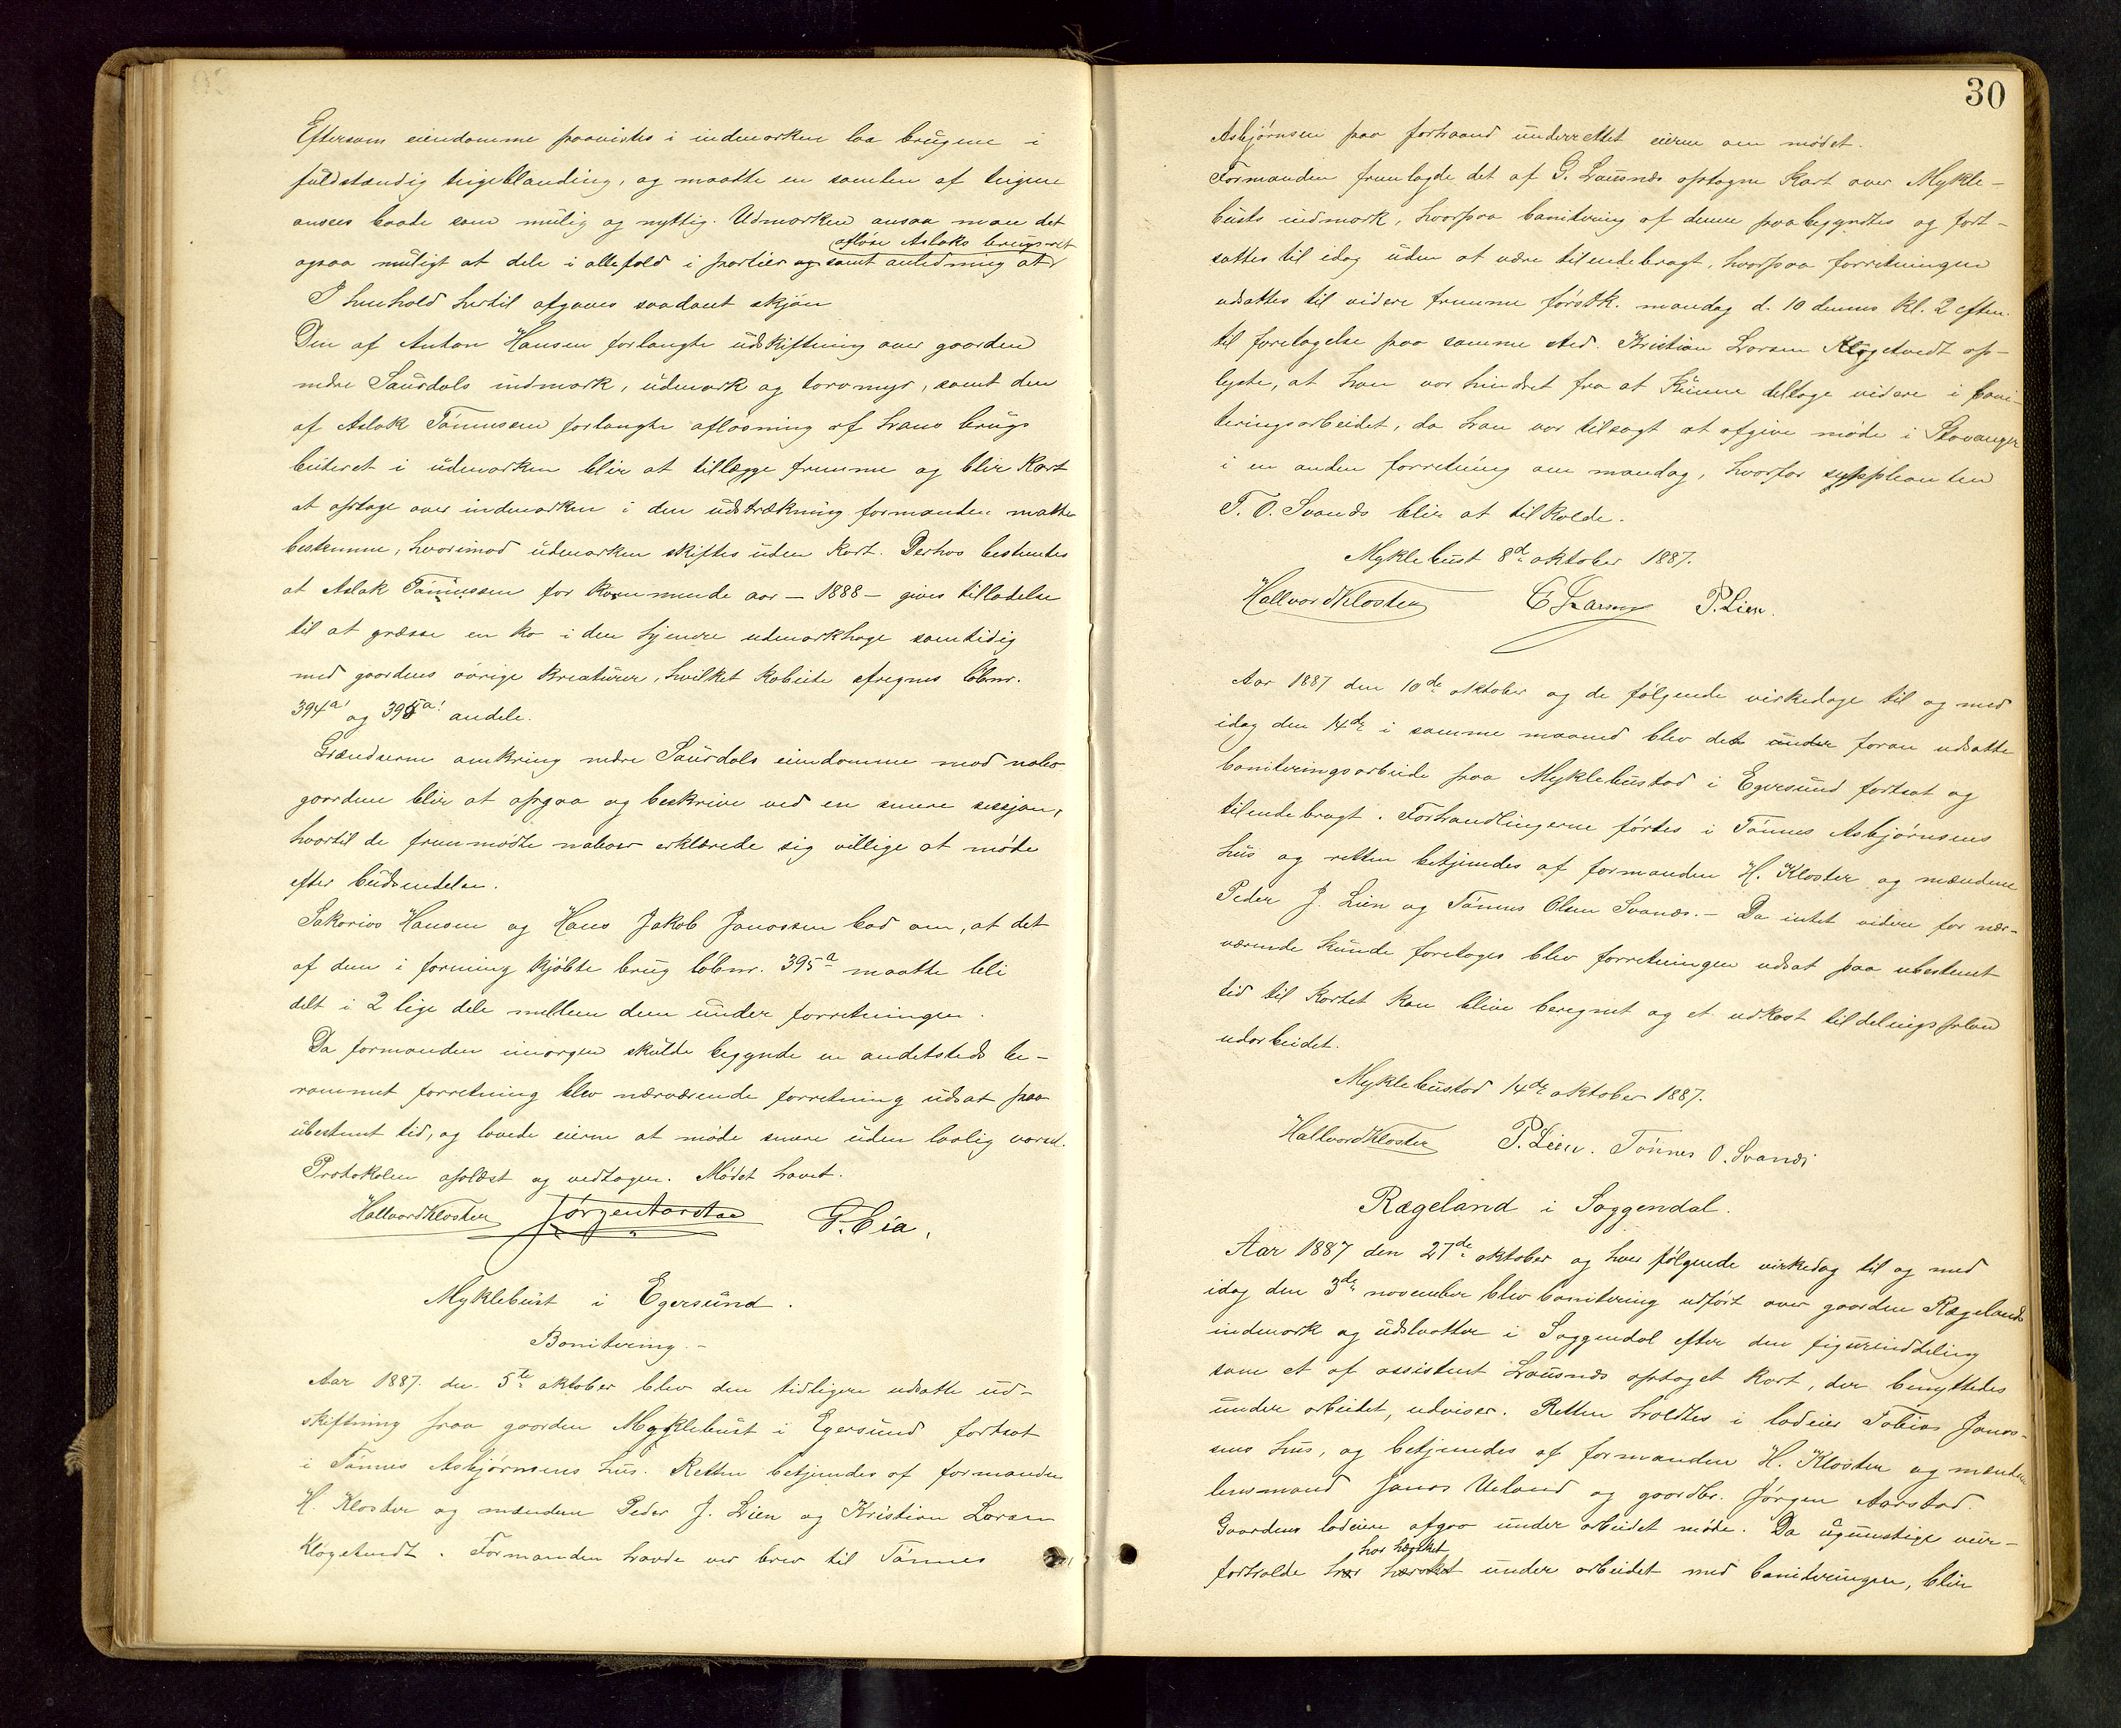 Eftersom eiendomme paavistes i indmarken laa brugene i
fuldstændig teigeblanding, og maatte en samlen af teigene
ansees baade som mulig og nyttig. Udmarken ansaa man det
afløse Aslaks brugsret
ogsaa muligt at dele i allefald i partier og samt anledning at
I henhold hertil afgaves saadant skjøn
Den af Anton Hansen forlangte udskiftning over gaarden
nedre Saurdals indmark, udmark og torvmyr, samt den
af Aslak Tønnessen forlangte afløsning af hans brugs
beiteret i udmarken blir at tillægge fremme og blir Kart
at optage over indmarken i den udstrækning formanden maatte
bestemme, hvorimod udmarken skiftes uden Kart. Derhos bestemtes
at Aslak Tønnessen for kommende aar – 1888 – gives tilladelse
til at græsse en ko i den hjemre udmarkhage samtidig
med gaardens øvrige kreaturer, hvilket kobeite afregnes løbnr.
394a' og 395a' andele.
Grændserne omkring nedre Saurdals eiendomme mod nabo
gaardene blir at opgaa og beskrive ved en senere session,
hvortil de fremmødte naboer erklærede sig villige at møde
efter budsendelse.
Sakarias Hansen og Hans Jakob Jonassen bad om, at det
af dem i forening kjøbte brug løbnr. 395a maatte bli
delt i 2 lige dele mellem dem under forretningen.
Da formanden imorgen skulde begynde en andetsteds be-
rammet forretning blev nærværende forretning udsat paa
ubestemt tid, og lovede eierne at møde senere uden lovlig varsel.
Protokolen oplæst og vedtagen. Mødet hævet.
Hallvard Kloster Jørgen Aarstad P. Eia.
Myklebust i Egersund.
Bonitering. –
Aar 1887. den 5te oktober blev den tidligere udsatte ud-
skiftning paa gaarden Myklebust i Egersund fortsat
i Tønnes Asbjørnsens hus. Retten betjentes af formanden
H. Kloster og mændene Peder J. Lien og Kristian Larsen
Kløgetvedt. Formanden havde ved brev til Tønnes
30
Asbjørnsen paa forhaand underrettet eierne om mødet.
Formanden fremlagde det af G. Lausnes optagne Kart over Mykle-
busts indmark, hvorpaa bonitering af denne paabegyndtes og fort-
sattes til idag uden at være tilendebragt, hvorpaa forretningen
udsattes til videre fremme førstk. mandag d. 10 dennes kl. 2 efterm.
til foretagelse paa samme sted. Kristian Larsen Kløgetvedt op-
lyste, at han var hindret fra at kunne deltage videre i boni-
teringsarbeidet, da han var tilsagt at afgive møde i Stavanger
i en anden forretning om mandag, hvorfor suppleanten
T. O. Svanes blir at tilkalde.
Myklebust 8de oktober 1887.
Hallvard Kloster P. Lien.
Aar 1887 den 10de oktober og de følgende virkedage til og med
idag den 14de i samme maaned blev det under foran udsatte
boniteringsarbeide paa Myklebustad i Egersund fortsat og
tilendebragt. Forhandlingerne førtes i Tønnes Asbjørnsens
hus og retten betjentes af formanden H. Kloster og mændene
Peder J. Lien og Tønnes Olsen Svanes. – Da intet videre for nær-
værende kunde foretages blev forretningen udsat paa ubestemt
tid til kartet kan blive beregnet og et udkast til delingsplan
udarbeidet.
Myklebustad 14de oktober 1887.
Hallvard Kloster P. Lien. Tønnes O. Svanes
Rægeland i Soggendal.
Aar 1887 den 27de oktober og hver følgende virkedag til og med
idag den 3de november blev bonitering udført over gaarden Rægelands
indmark og udslaatter i Soggendal efter den figurinddeling
som et af assistent Lausnes optaget Kart, der benyttedes
under arbeidet, udviser. Retten holdtes i lodeier Tobias Jonas-
sens hus, og betjentes af formanden H. Kloster og mændene
lensmand Jonas Ueland og gaardbr. Jørgen Aarstad.
Gaardens lodeiere afgav under arbeidet møde. Da ugunstige veir-
har hersket
forholde har hersket under arbeidet med boniteringen, blir